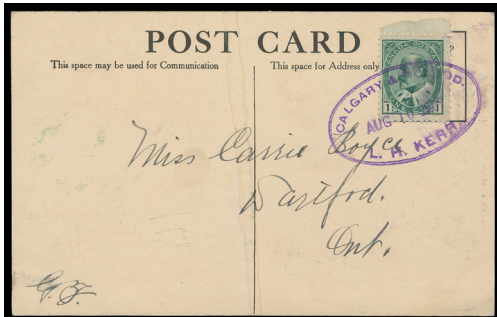 POST CARD
This space may be used for Communication
This space for Address only
CANADA POSTAGE
1 1
CALGARY
AUG
L. H. KERR
Miss Carrie Boyce
Dartford.
Ont.